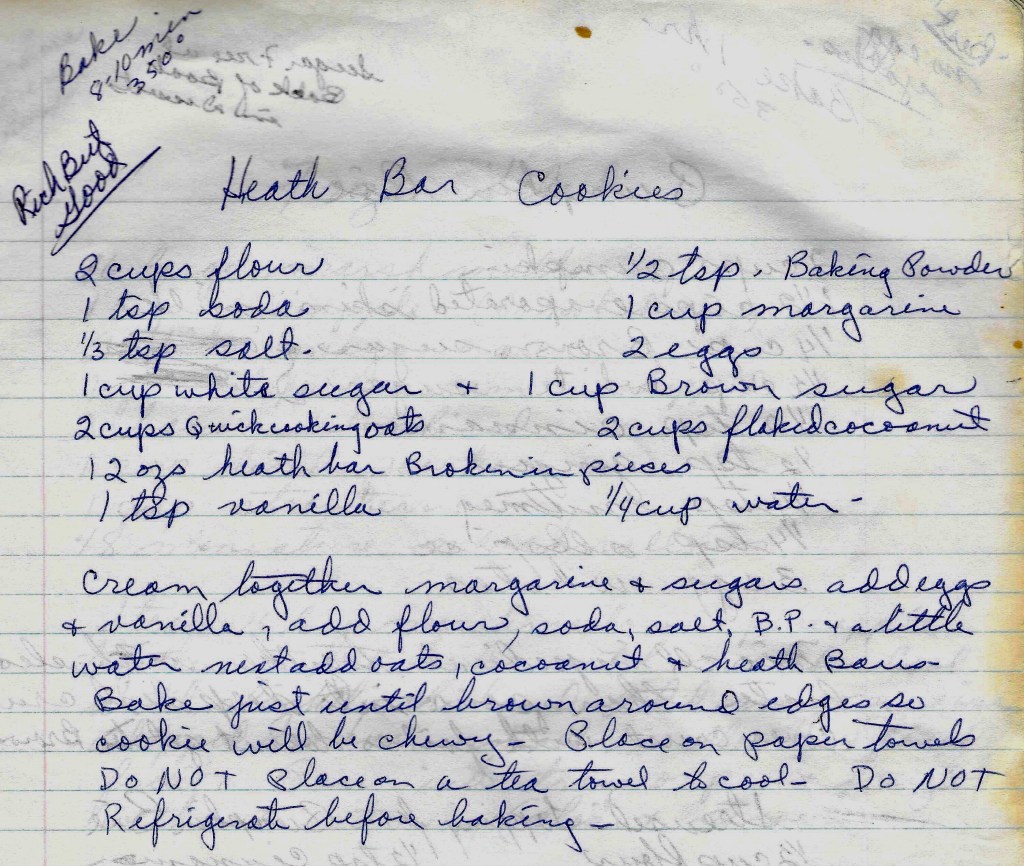 Bake
8-10 min
350°
Rich But
Good
Heath Bar Cookies
2 cups flour 1/2 tsp. Baking Powder
1 tsp soda 1 cup margarine
1/3 tsp salt. 2 eggs
1 cup white sugar + 1 cup Brown sugar
2 cups Quick cooking oats 2 cups flaked cocoanut
12 ozs heath bar Broken in pieces
1 tsp vanilla 1/4 cup water -
Cream together margarine + sugars add eggs
+ vanilla, add flour, soda, salt, B.P. + a little
water next add oats, cocoanut + heath Bars-
Bake just until brown around edges so
cookie will be chewy- Place on paper towels
DO NOT place on a tea towel to cool- DO NOT
Refrigerate before baking-